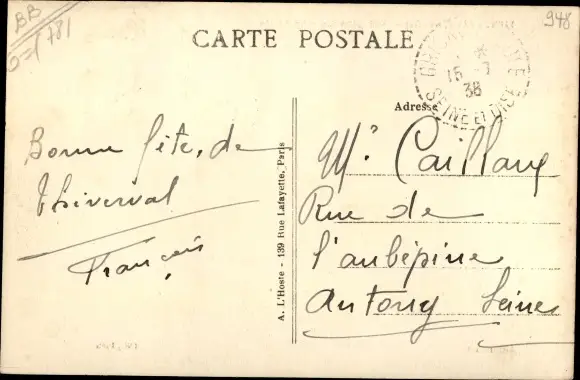 BB
948
CARTE POSTALE
16-7
38
SEINE ET OISE
Adresse
Bonne fête, de
Thiverval
François
A. L'Hoste - 139 Rue Lafayette, Paris
Mr Caillaux
Rue de
l'aubépine
Antony Seine